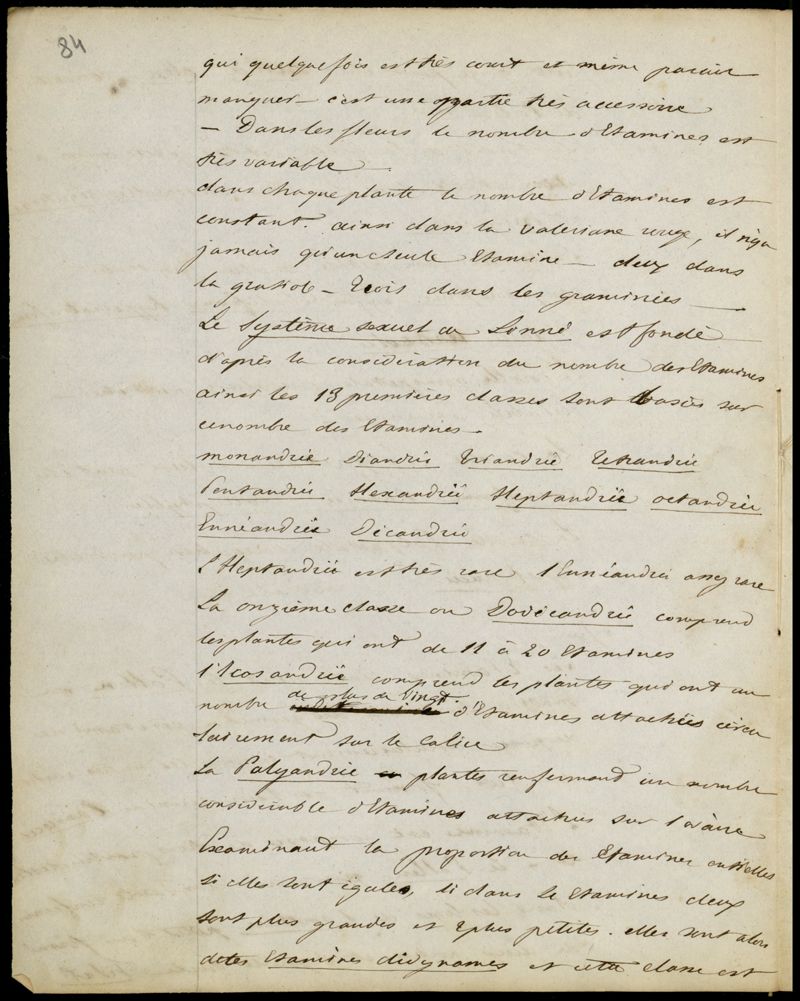 84
qui quelque fois est très court et même paroit
manquer – c'est une partie très accessoire
– Dans les fleurs le nombre d'Etamines est
très variable
dans chaque plante le nombre d'Etamines est
constant. ainsi dans la valeriane rouge, il n'y a
jamais qu'une seule Etamine – deux dans
la gratiole – Trois dans les graminées –
Le Système sexuel de Linné est fondé
d'après la considération du nombre des Etamines
ainsi les 13 premières classes sont basées sur
ce nombre des Etamines.
monandrie Diandrie Triandrie Tetrandrie
Pentandrie Hexandrie Heptandrie octandrie
Ennéandrie Décandrie
l'Heptandrie est très rare l'Ennéandrie assez rare
La onzième classe ou Dodécandrie comprend
les plantes qui ont de 11 à 20 Etamines
l'Icosandrie comprend les plantes qui ont un
nombre de plus de Vingt d'Etamines attachées circu
lairement sur le Calice
La Polyandrie plantes renfermant un nombre
considérable d'Etamines attachées sur l'ovaire
Examinant la proportion des Etamines entr'elles
si elles sont égales, si dans le Etamines deux
sont plus grandes et 2 plus petites. elles sont alors
dites Etamines didynames et cette classe est